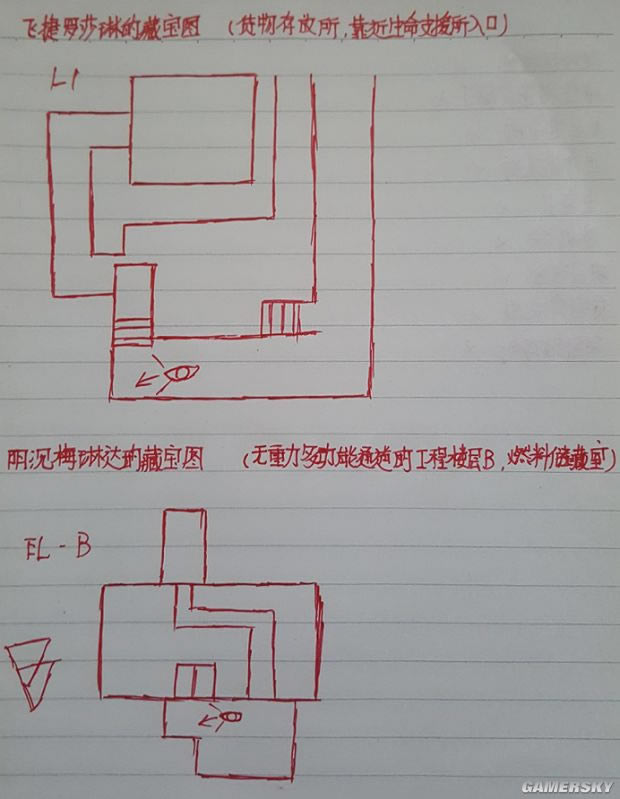 飞捷罗莎琳的藏宝图 (货物存放所,靠近生命支援所入口)
L1
阴沉梅琳达的藏宝图 (无重力多功能通道的工程楼层B,燃料储藏室)
EL-B
GAMERSKY